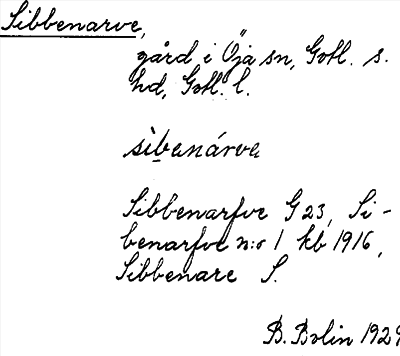 Sibbenarve,
gård i Öja sn, Gotl. s.
hd, Gotl. l.
sìbenárva
Sibbenarfve G 23, Si-
benarfve n:o 1 kb 1916,
Sibbenare S.
B. Bolin 1929